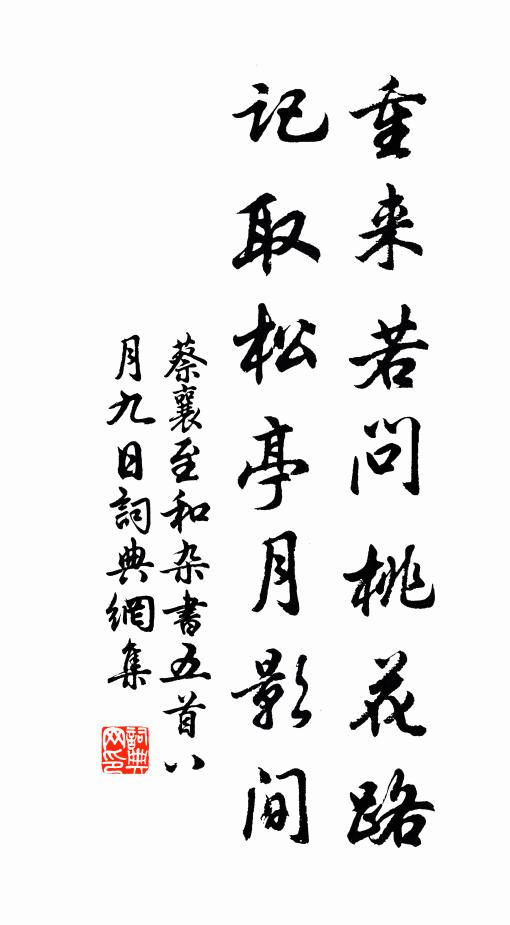 重来若问桃花路
记取松亭月影间
蔡襄至和杂書五首八
月九日詞典網集
詞典
网印